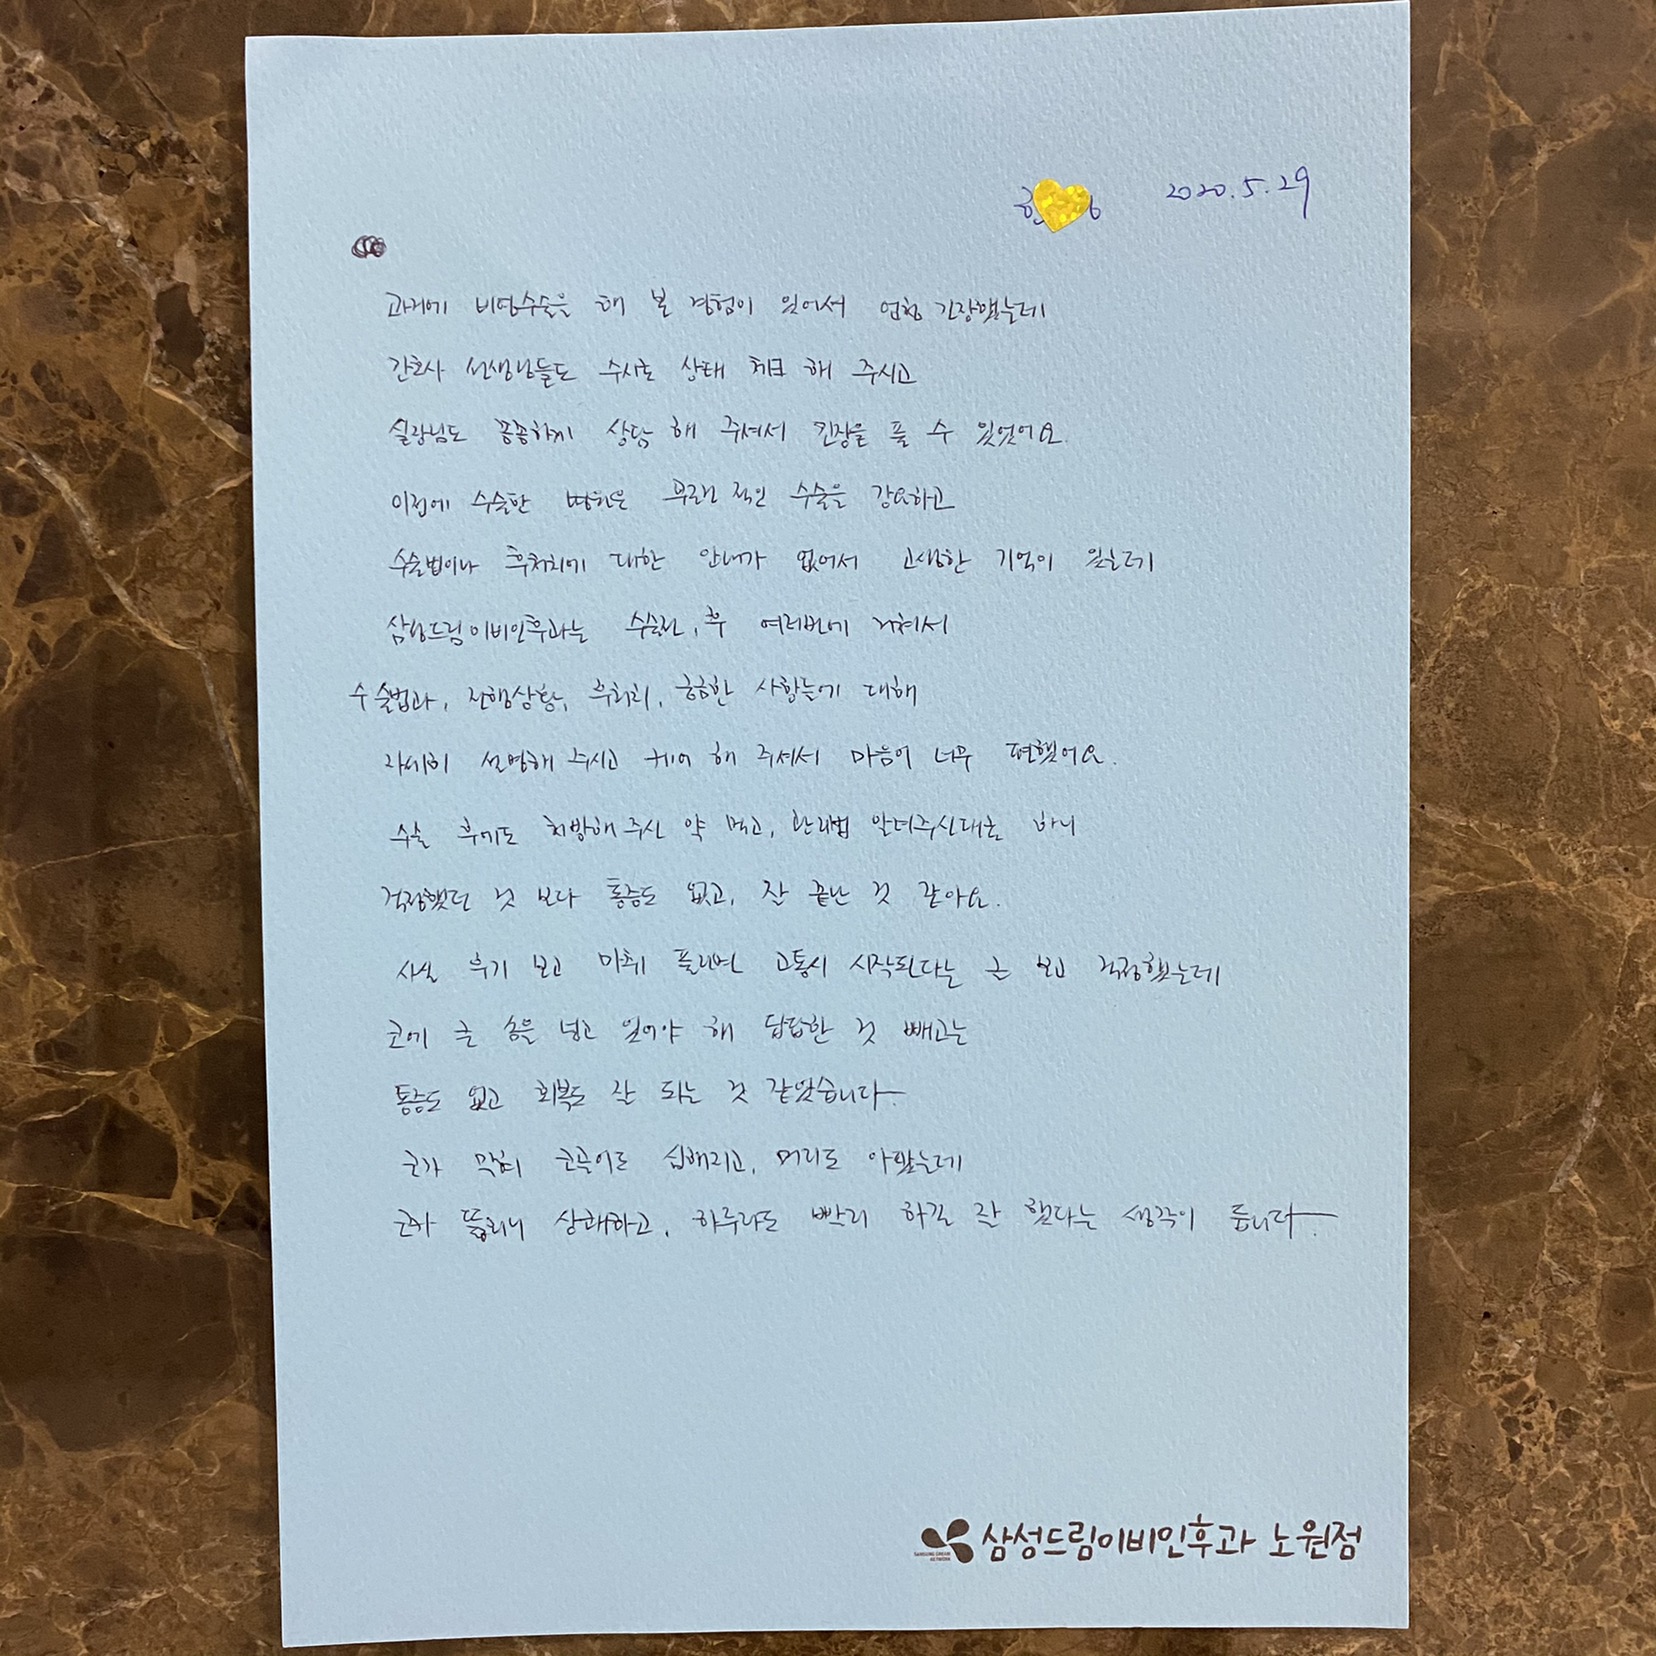 2020.5.29
과거에 비염수술을 해 본 경험이 있어서 엄청 긴장했는데
간호사 선생님들도 수시로 상태 체크 해 주시고
실장님도 꼼꼼하게 상담 해 주셔서 긴장을 풀 수 있었어요.
이전에 수술한 병원은 무리한 수술을 강요하고
수술법이나 후처치에 대한 안내가 없어서 고생한 기억이 있는데
삼성드림이비인후과는 수술전, 후 여러번에 거쳐서
수술법과, 진행상황, 후처치, 궁금한 사항들에 대해
자세히 설명해 주시고 케어 해 주셔서 마음이 너무 편했어요.
수술 후에도 처방해 주신 약 먹고, 관리법 알려주신대로 하니
걱정했던 것 보다 통증도 없고, 잘 끝난 것 같아요.
사실 후기 보고 마취 풀리면 고통이 시작된다는 글 보고 걱정했는데
코에 솜을 넣고 있어야 해 답답한 것 빼고는
통증도 없고 회복도 잘 되는 것 같았습니다
코가 막혀 코골이도 심해지고, 머리도 아팠는데
코가 뚫리니 상쾌하고, 하루라도 빨리 하길 잘 했다는 생각이 듭니다.
삼성드림이비인후과 노원점